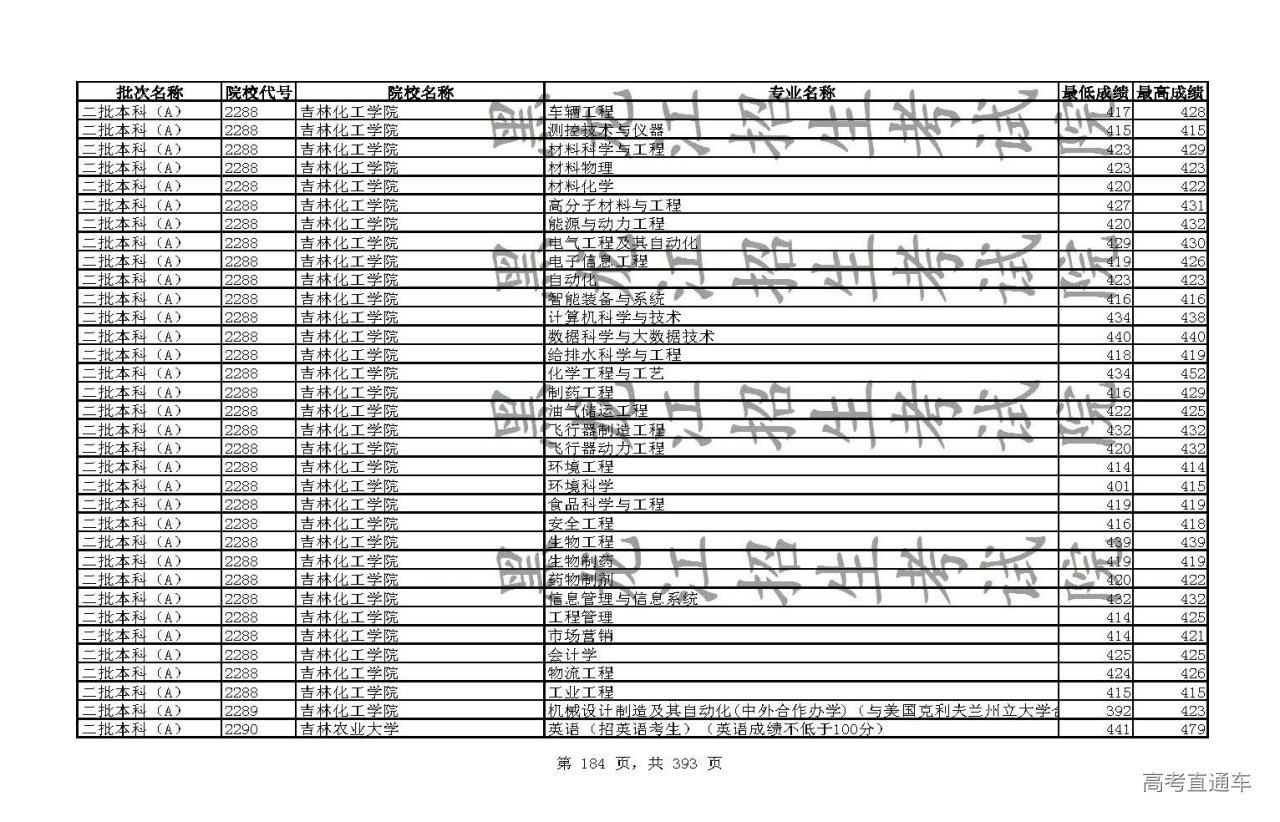 批次名称 院校代号 院校名称 专业名称 最低成绩 最高成绩
二批本科（A） 2288 吉林化工学院 车辆工程 417 428
二批本科（A） 2288 吉林化工学院 测控技术与仪器 415 415
二批本科（A） 2288 吉林化工学院 材料科学与工程 423 429
二批本科（A） 2288 吉林化工学院 材料物理 423 423
二批本科（A） 2288 吉林化工学院 材料化学 420 422
二批本科（A） 2288 吉林化工学院 高分子材料与工程 427 431
二批本科（A） 2288 吉林化工学院 能源与动力工程 420 432
二批本科（A） 2288 吉林化工学院 电气工程及其自动化 429 430
二批本科（A） 2288 吉林化工学院 电子信息工程 419 426
二批本科（A） 2288 吉林化工学院 自动化 423 423
二批本科（A） 2288 吉林化工学院 智能装备与系统 416 416
二批本科（A） 2288 吉林化工学院 计算机科学与技术 434 438
二批本科（A） 2288 吉林化工学院 数据科学与大数据技术 440 440
二批本科（A） 2288 吉林化工学院 给排水科学与工程 418 419
二批本科（A） 2288 吉林化工学院 化学工程与工艺 434 452
二批本科（A） 2288 吉林化工学院 制药工程 416 429
二批本科（A） 2288 吉林化工学院 油气储运工程 422 425
二批本科（A） 2288 吉林化工学院 飞行器制造工程 432 432
二批本科（A） 2288 吉林化工学院 飞行器动力工程 420 432
二批本科（A） 2288 吉林化工学院 环境工程 414 414
二批本科（A） 2288 吉林化工学院 环境科学 401 415
二批本科（A） 2288 吉林化工学院 食品科学与工程 419 419
二批本科（A） 2288 吉林化工学院 安全工程 416 418
二批本科（A） 2288 吉林化工学院 生物工程 439 439
二批本科（A） 2288 吉林化工学院 生物制药 419 419
二批本科（A） 2288 吉林化工学院 药物制剂 420 422
二批本科（A） 2288 吉林化工学院 信息管理与信息系统 432 432
二批本科（A） 2288 吉林化工学院 工程管理 414 425
二批本科（A） 2288 吉林化工学院 市场营销 414 421
二批本科（A） 2288 吉林化工学院 会计学 425 425
二批本科（A） 2288 吉林化工学院 物流工程 424 426
二批本科（A） 2288 吉林化工学院 工业工程 415 415
二批本科（A） 2289 吉林化工学院 机械设计制造及其自动化(中外合作办学)（与美国克利夫兰州立大学合 392 423
二批本科（A） 2290 吉林农业大学 英语（招英语考生）（英语成绩不低于100分） 441 479
黑龙江招生考试院
黑龙江招生考试院
黑龙江招生考试院
黑龙江招生考试院
第 184 页，共 393 页
高考直通车